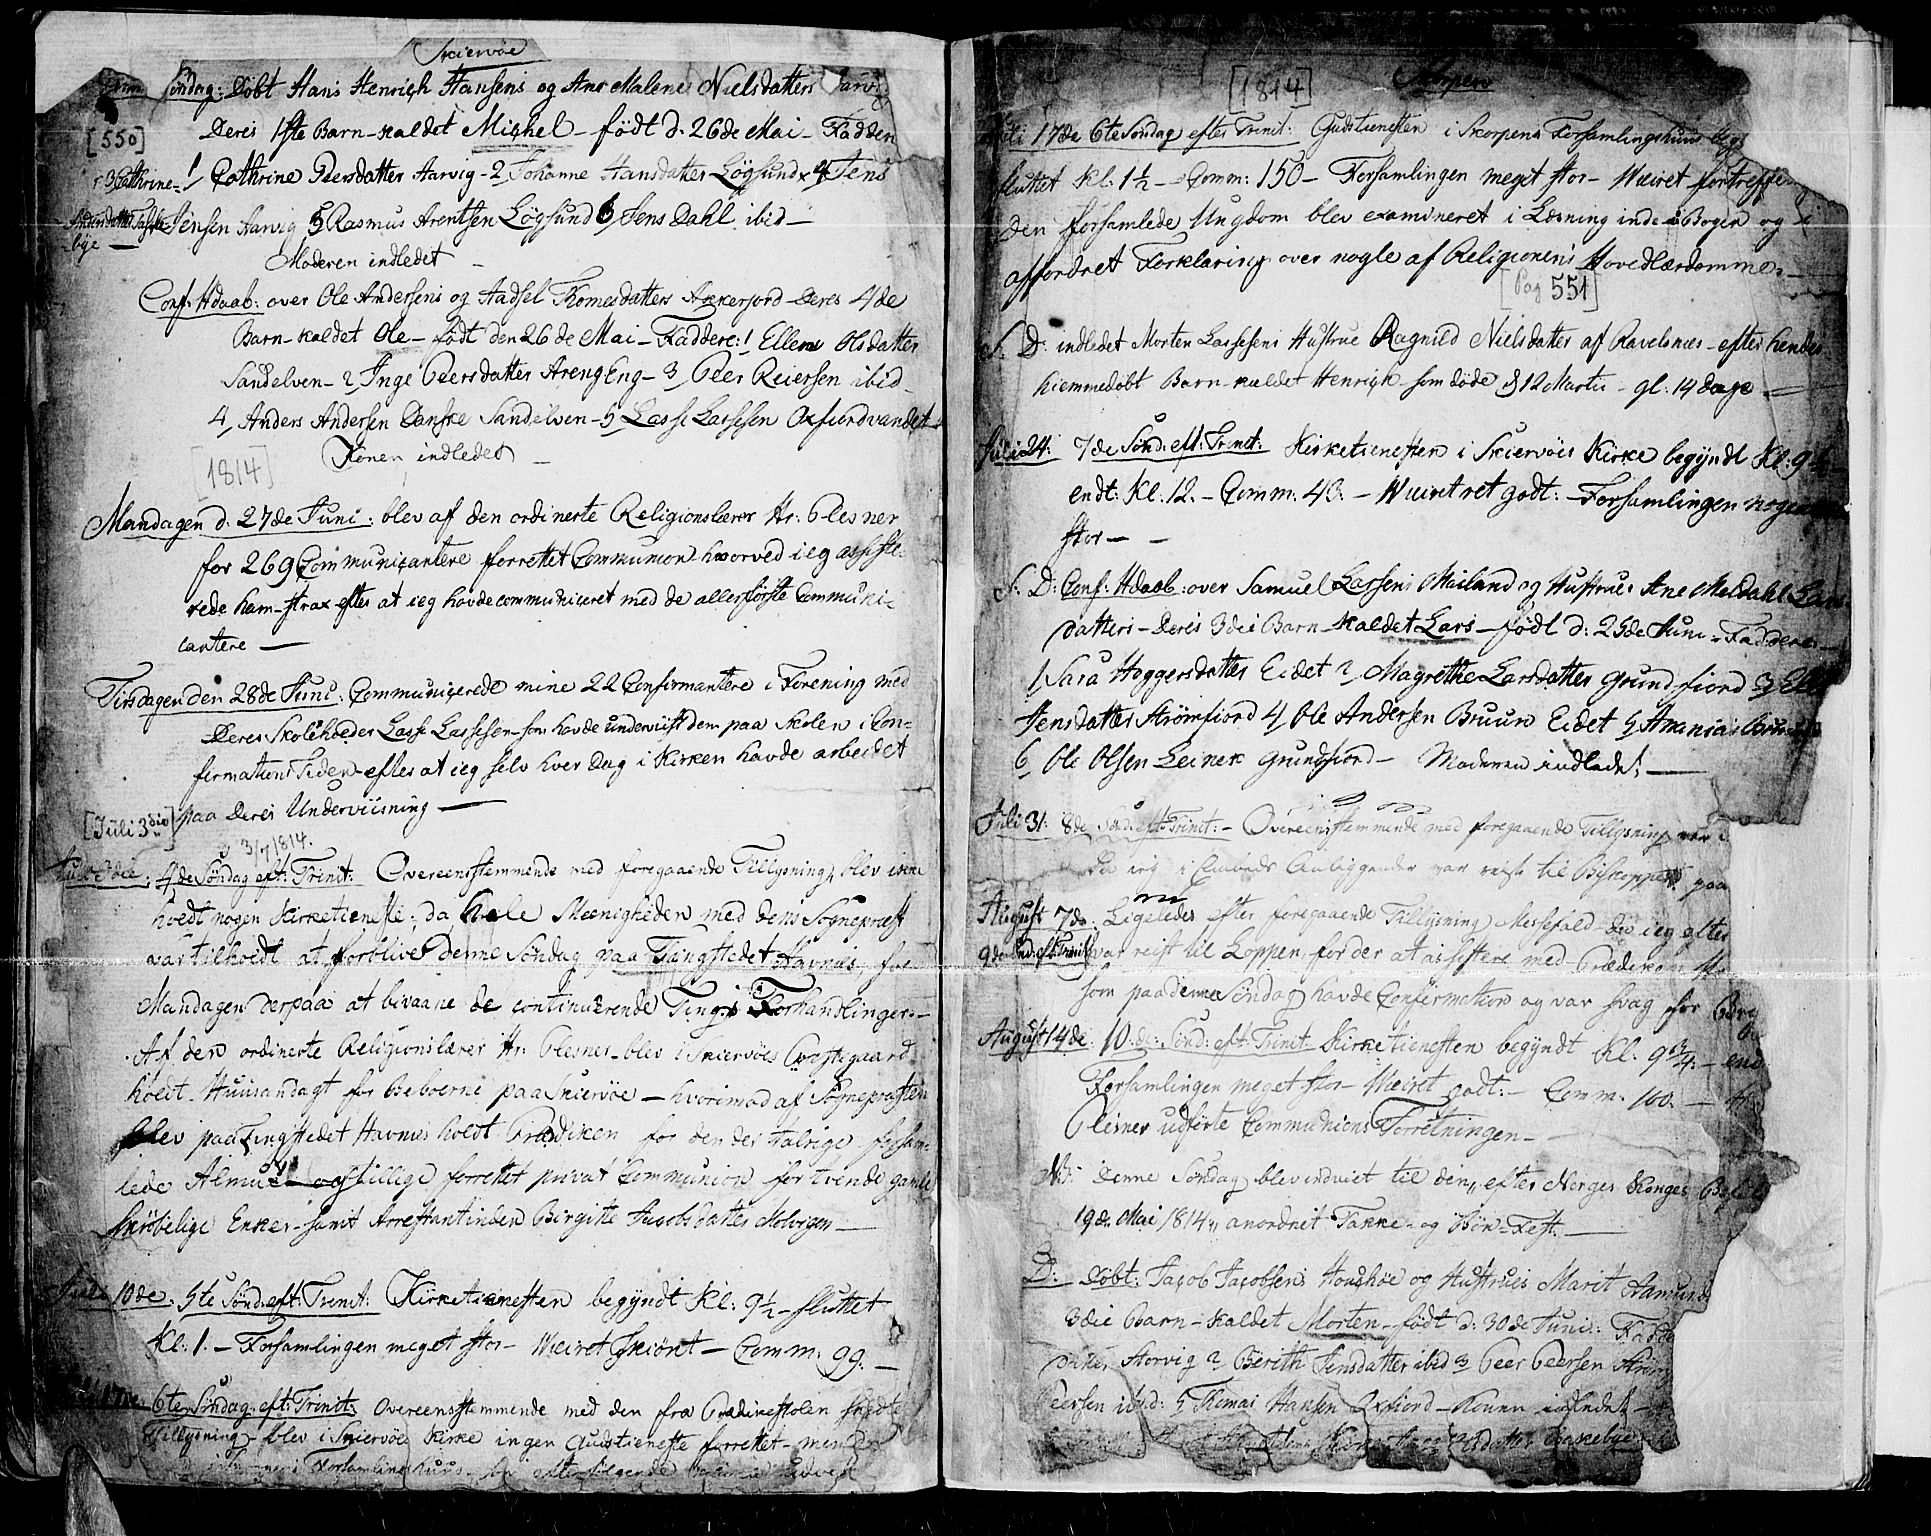 Skiervöe
Söndag: Döbt Hans Henrich Hansens og Ane Malene Nielsdatters
[550]
Deres 1ste Barn - kaldet Michel - født d. 26de Mai - Fadder
1/ Cathrine Peersdatter Aarvig - 2, Johanne Hansdatter Lögsund x 4 Jens
r 3 Cathrine
Jensen Aarvig 5 Rasmus Arentsen Lögsund 6 Jens Dahl ibid -
bye -
Moderen indledet -
Conf: Hdaab: over Ole Andersens og Aadsel Thomesdatters Akkerjord Deres 4de
Barn - kaldet Ole - født den 26de Mai - Faddere: 1 Ellen Olsdatter
Sandelven - 2, Inge Peersdatter ArengEng - 3, Peer Reiersen ibid -
4, Anders Andersen Danske Sandelven - 5, Lasse Lassesen Oxfiordvandet -
Konen indledet -
[1814]
Mandagen d: 27de Juni: blev af den ordinerte Religionslærer Hr: Plesner
for 269 Communicantere forrettet Communion hvorved ieg assiste-
rede ham - strax efter at ieg havde communiceret med de allerförste Communi-
cantere -
Tirsdagen den 28de Juni: Communicerede mine 22 Confirmantere i Forening med
Deres Skoleholder Lasse Lassesen - som havde underviist dem paa Skolen i Con-
firmations Tiden - efter at ieg selv hver Dag i Kirken havde arbeidet
paa Deres Underviisning -
[Juli 3die]
3/7 1814.
3die: 4de Söndag eft: Trinit: Overeensstemmende med foregaaende Tillysning, blev ikke
holdt nogen Kirketieneste; da hele Menigheden med dens Sognepræst
var tilholdt at forblive denne Söndag paa Tingstedet Havnæs, for
Mandagen derpaa at bivaane de continuerende Tings Forhandlinger -
Af den ordinerte Religionslærer Hr: Plesner - blev i Skiervöes Præstegaard
holdt Huusandagt for Beboerne paa Skiervöe - hvorimod af Sognepræsten
blev paa Tingstedet Havnæs holdt Prædiken for den der talrige forsam-
lede Almue - og tillige forrettet privat Communion for tvende gamle
skröbelige Enker - samt Arrestantinden Birgitte Jacobsdatter Molvigen -
Juli 10de. 5te Sönd: eft: Trinit: Kirketienesten begyndt Kl: 9½ - sluttet
Kl: 1. - Forsamlingen meget stor - Væiret skiönt - Comm: 99. -
17de: 6te Söndag eft: Trinit: Overeensstemmende med den fra Prædikestolen skeedte
Tillysning - blev i Skiervöe Kirke ingen Gudstieneste forrettet - men
Forsamlingshuus - efterfølgende
[1814]
Skorpen
Juli 17de 6te Söndag efter Trinit: Gudstienesten i Skorpens Forsamlingshuus beg
sluttet Kl: 1½ - Comm: 150 - Forsamlingen meget stor - Væiret fortreffe
Den forsamlede Ungdom blev examineret i Læsning inden Bogen og
affordret Forklaring over nogle af Religionens Hovedlærdomme. -
[Pag 551]
S. D: indledet Morten Lassesens Hustrue Ragnild Nielsdatter af Ravelsnæs - efter hendes
hiemmedöbt Barn - kaldet Henrich - som döde d 12 Martii - gl. 14 dage -
Juli 24: 7de Sönd: eft: Trinit: Kirketienesten i Skiervöes Kirke begyndt Kl: 9½
endt: Kl: 12. - Comm: 43. - Væiret ret godt: - Forsamlingen nogen
stor - -
S. D: Conf: Hdaab: over Samuel Larsens Mailand og Hustrues Ane Meldahl Lars
datters - Deres 3die Barn - kaldet Lars - født d: 25de Juni - Faddere -
1, Sara Hoggersdatter Eidet 2, Magrethe Larsdatter Grundfiord 3,
Jensdatter Strömfiord 4, Ole Andersen Bruun Eidet 5 Ananias Bruun
6, Ole Olsen Leinek Grundfiord - Moderen indledet -
Juli 31: 8de Sönd: eft: Trinit: - Overeenstemmende med foregaaende Tillysning
Da ieg i Embeds Anliggender var reist til Biskoppen paa
August 7de: Ligeledes efter foregaaende Tillysning Messefald - da ieg efter
9de Sönd: eft: Trinit: var reist til Loppen, for der at assistere med Prædiken
som paa denne Söndag havde Confirmation og var svag for Bryst
August 14de. 10de: Sönd: eft: Trinit: Kirketienesten begyndt Kl: 9¾ - end
Forsamlingen meget stor - Væiret godt: - Comm: 100. -
Plesner udförte Communions Forretningen -
NB: Denne Söndag blev indviet til den, efter Norges Konges Befal
19de Mai 1814, anordnet Takke- og Bön-Fest. -
D: Döbt: Jacob Jacobsens Houshöe og Hustrues Marit Aamunds
3die Barn - kaldet Morten - født d: 30de Juni: Fadde
Storvig 2, Bereth Jensdatter ibid 3 Peer Peersen Ström
Peersen ibid: 5 Thomas Hansen Oxfiord - Konen indledet -
Baskebye